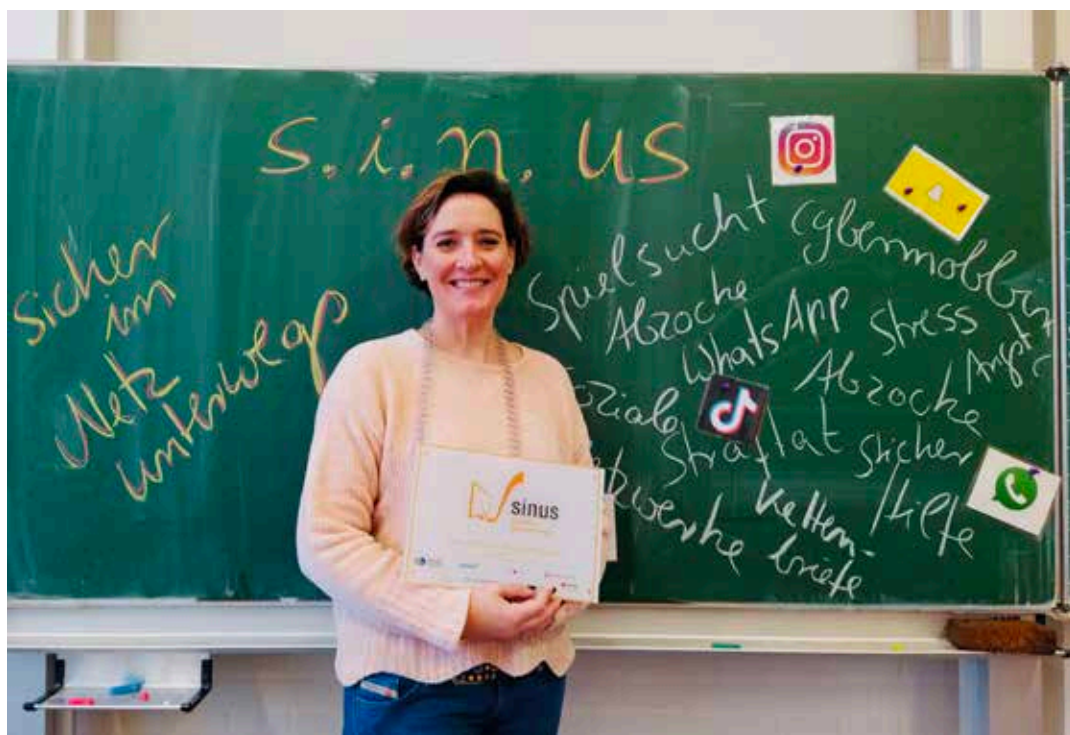 s.i.n. us
sicher
im
Netz
unterwegs
Spielsucht
Cybermobbing
Abzocke
WhatsApp
Stress
Angst
Abzocke
Straftat
sicher
Hilfe
Ketten-
briefe
sinus